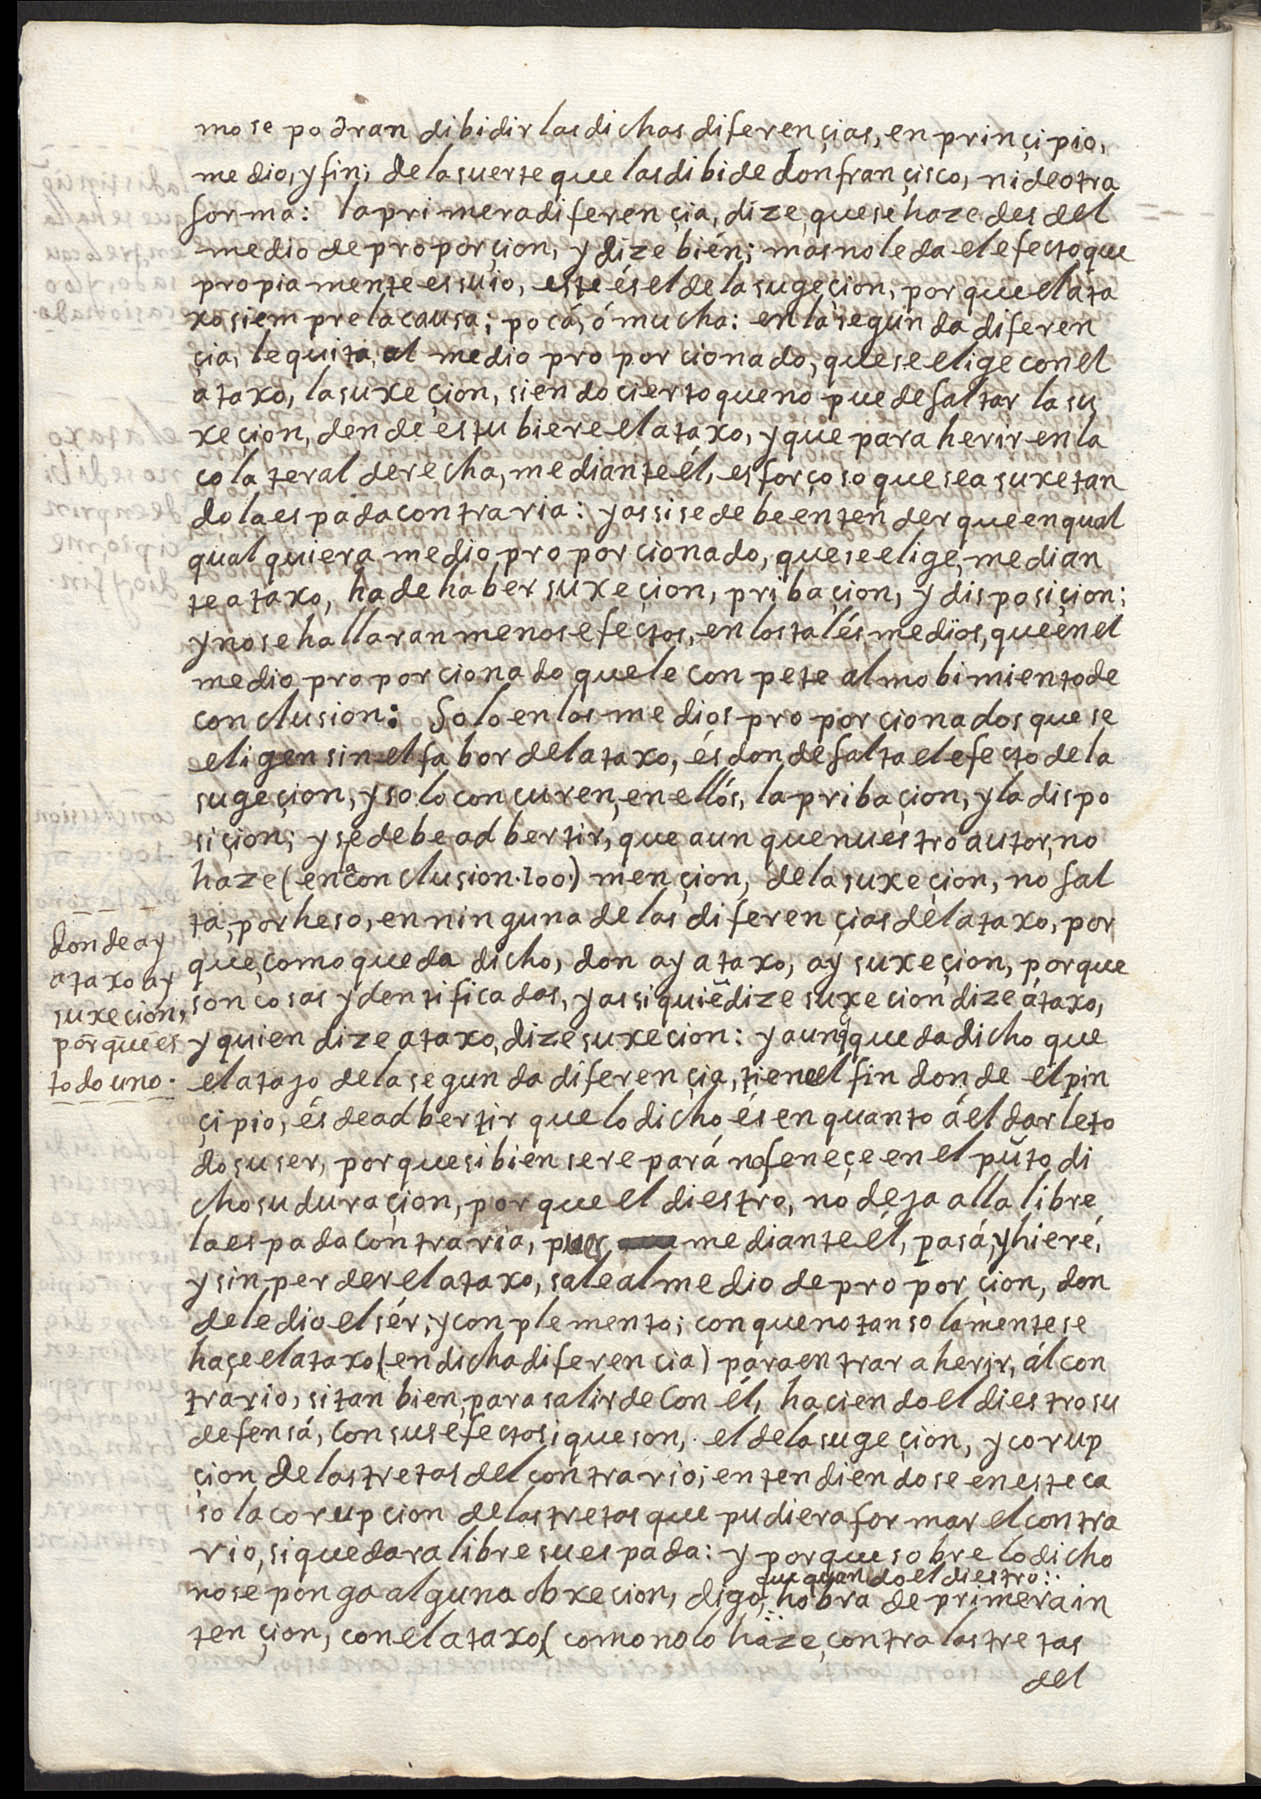 mo se podran dibidir las dichas diferençias, en prinçipio,
medio, y fin; de la suerte que las dibide don françisco, ni de otra
forma: la primera diferençia, dize, que se haze des del
medio de proporçion, y dize bién; mas no le da el efecto que
propiamente es suio, este és el de la sugeçion, porque el ata
xo siempre la causa; poca, ó mucha: en la segunda diferen
çia, le quita, al medio proporcionado, que se elige con el
ataxo, la suxeçion, siendo cierto que no puede faltar la su
xeçion, dende estubiere el ataxo, y que para herir en la
colateral derecha, mediante él, es forçoso que sea suxetan
do la espada contraria: y assi se debe entender que en qual
qualquiera medio proporcionado, que se elige, median
te ataxo, ha de haber suxeçion, pribaçion, y disposiçion;
y no se hallaran menos efectos, en los talés medios, que en el
medio proporcionado que le conpete al mobimiento de
conclusion: Solo en los medios proporçionados que se
eligen sin el fabor del ataxo, és donde falta el efecto de la
sugeçion, y solo concuren, en ellós, la pribaçion, y la dispo
siçion; y se debe adbertir, que aunque nuestro autor, no
haze (en la conclusion.100.) mençion, de la suxeçion, no fal
ta, por heso, en ninguna de las diferençias del ataxo, por
que, como queda dicho, don ay ataxo, ay suxeçion, porque
son cosas ydentificadas, y assi quiē dize suxecion dize átaxo,
y quien dize ataxo, dize suxecion: y aunq̃ queda dicho que
el atajo de la segunda diferençia, tiene el fin donde él pin
çipio, és de adbertir que lo dicho és en quanto á el darle to
do su ser, porque si bien se repará no feneçe en el pũto di
cho su duraçion, porque el diestro, no deja alla libre
la espada contraria, pues mediante él, pasá, y hieré,
y sin perder el ataxo, sale al medio de proporçion, don
de le dio el sér, y conplemento; con que no tan solamente se
haçe el ataxo (en dicha diferencia) para entrar a herir, ál con
trario, si tan bien, para salir de con él, haciendo el diestro su
defensá, con sus efectos; que son, el de la sugeçion, y corup
cion de las tretas del contrario; entendiendose en este ca
so la corupcion de las tretas que pudiera formar el contra
rio, si quedara libre su espada: y porque sobre lo dicho
que quando el diestro:
no se ponga alguna obxecion, digo, hobra de primera in
tençion, con el ataxo (como no lo haze, contra las tretas
del
donde ay
ataxo ay
suxecion,
porque es
todo uno.